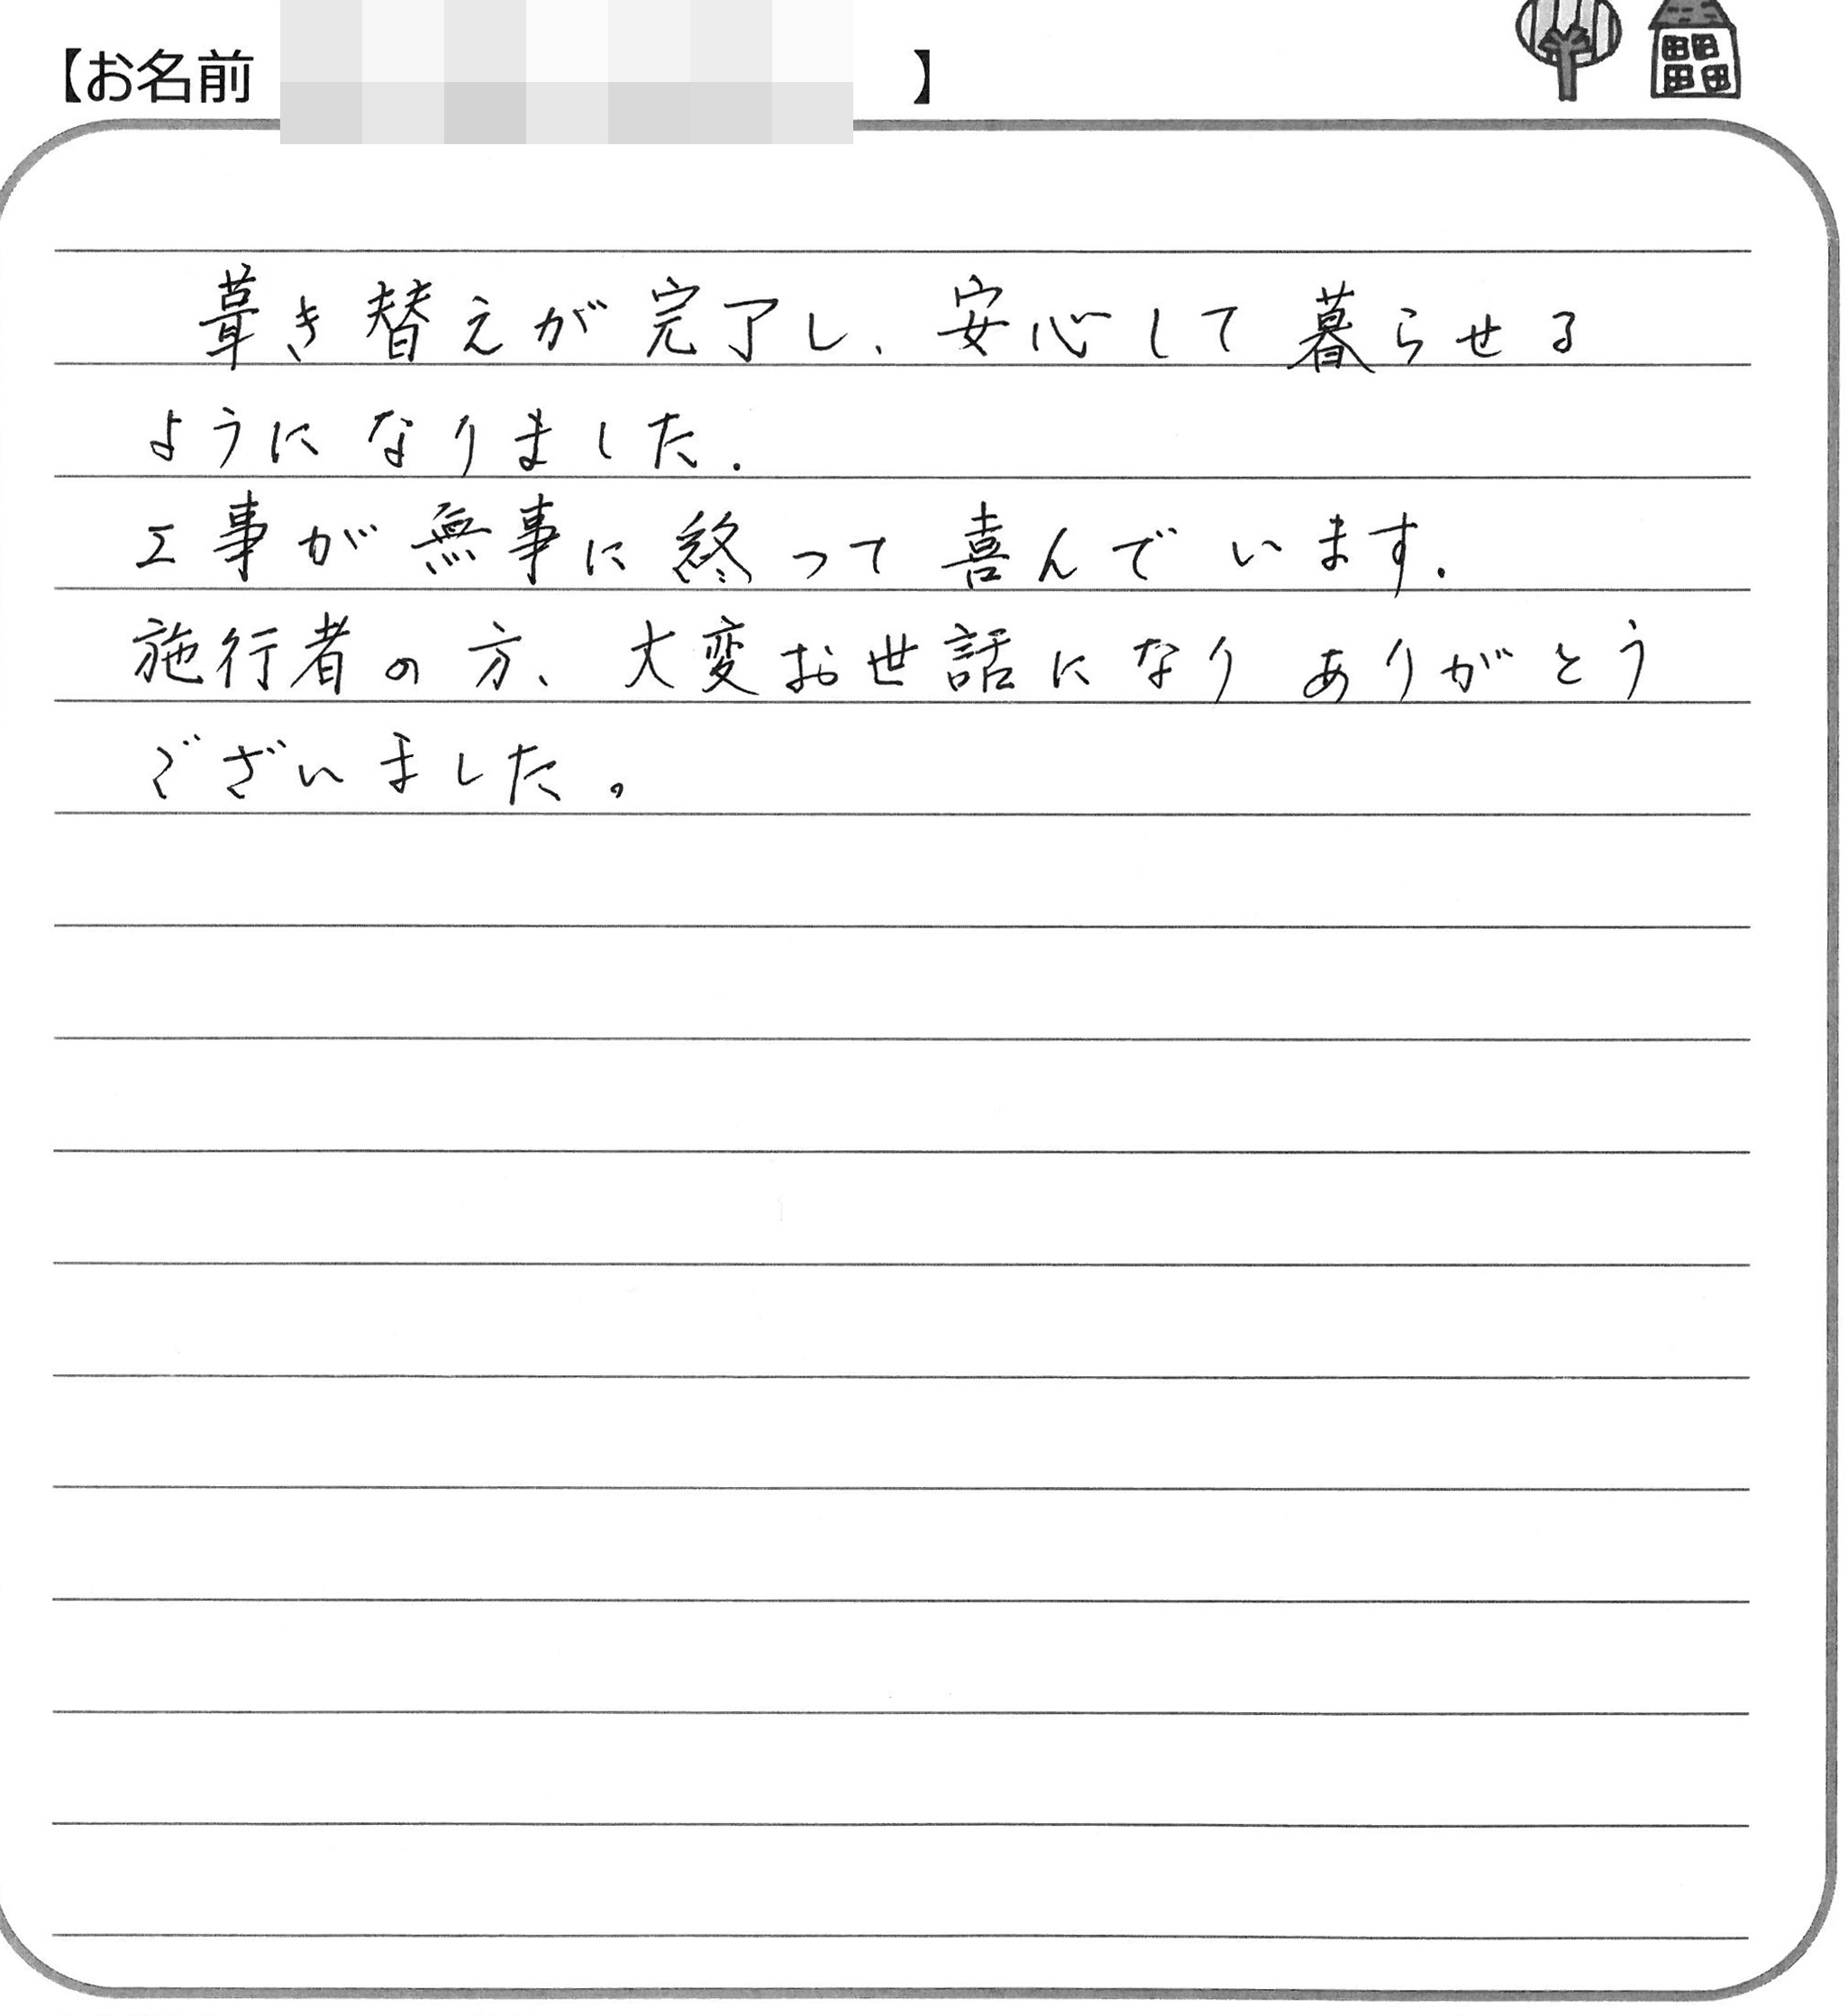 【お名前 】
葺き替えが完了し、安心して暮らせる
ようになりました.
工事が無事に終って喜んでいます.
施行者の方、大変お世話になりありがとう
ございました。